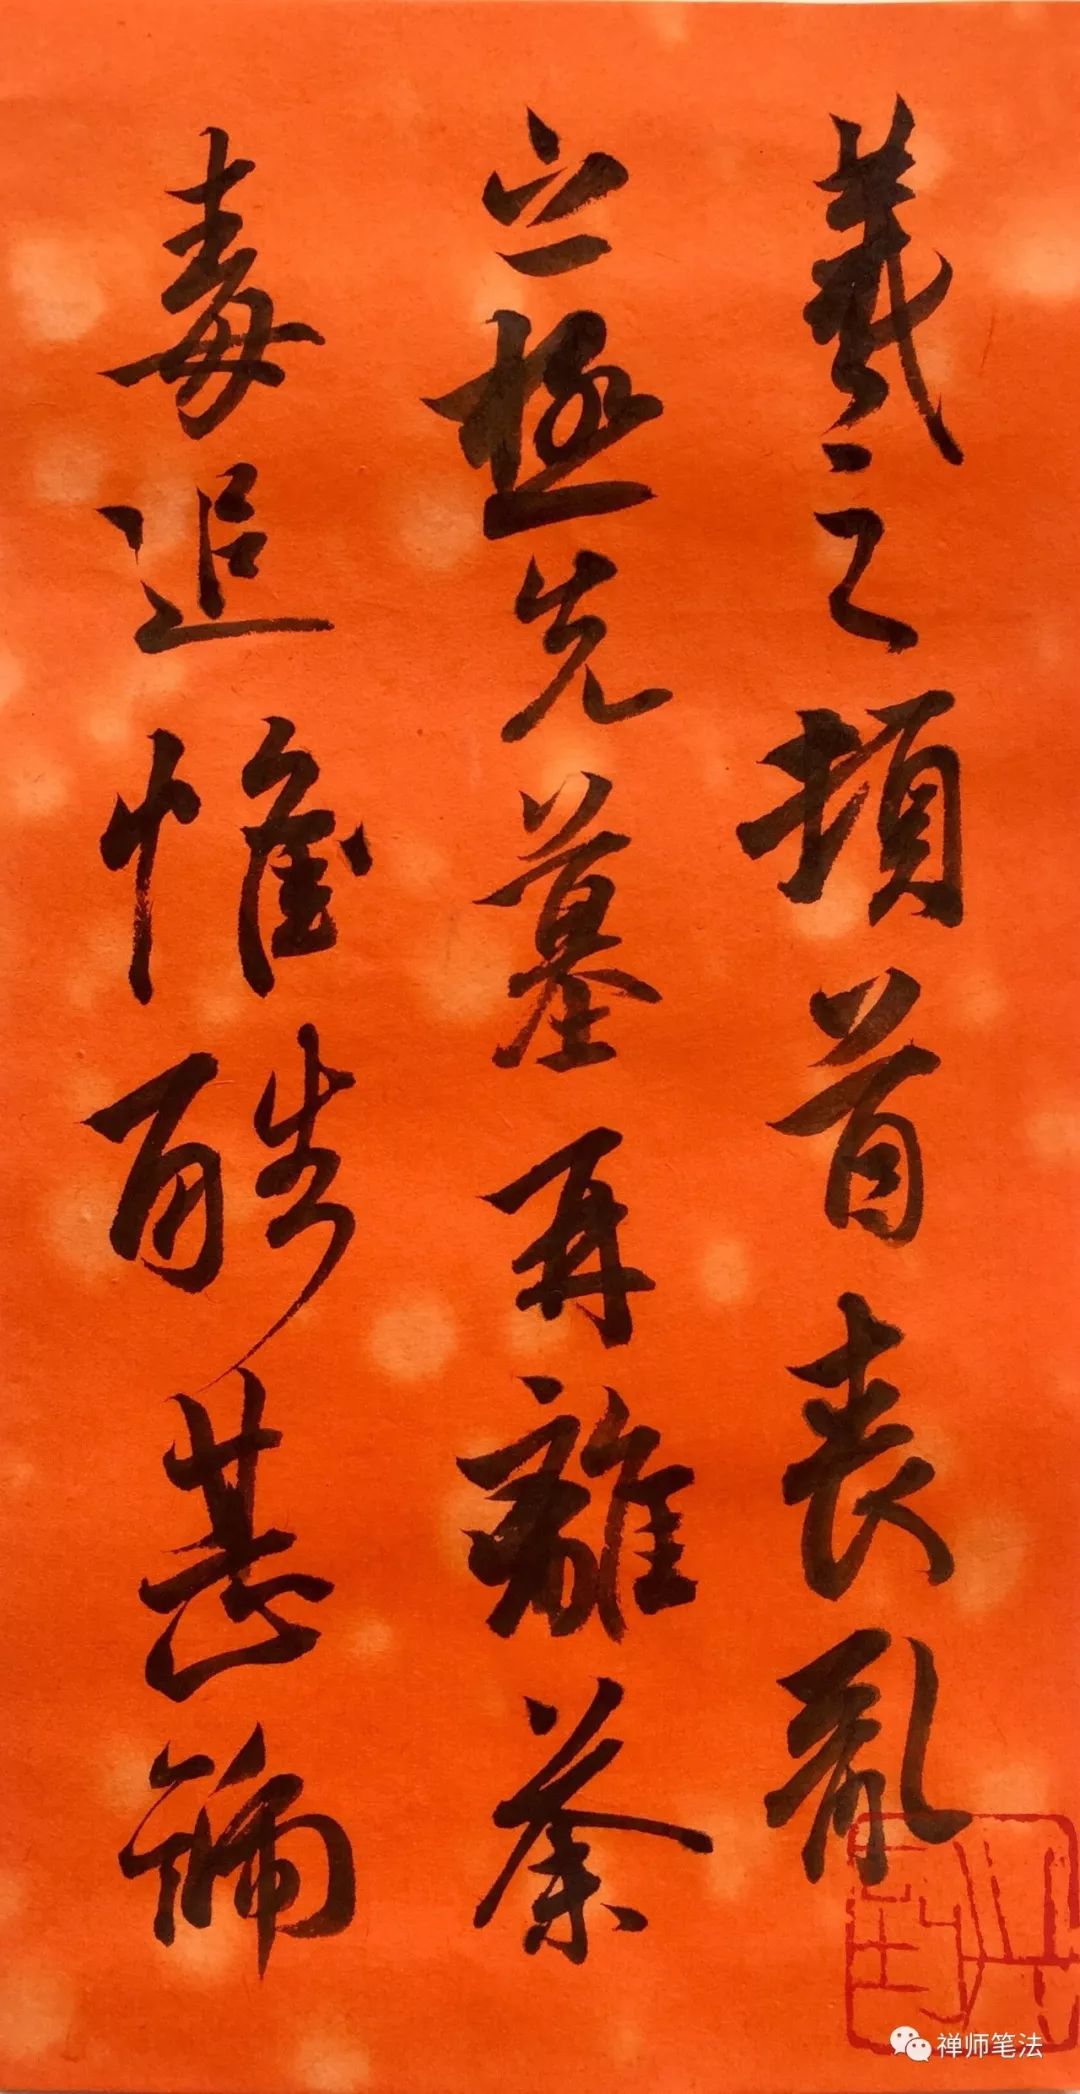 羲之頓首喪亂
之極先墓再離荼
毒追惟酷甚號
禅师笔法